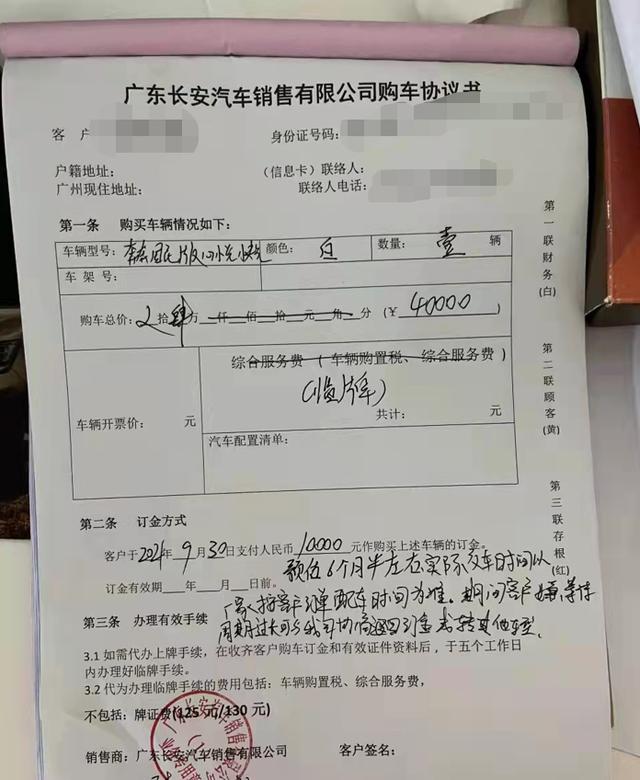 广东长安汽车销售有限公司购车协议书
客 户
身份证号码:
户籍地址:
(信息卡)联系人:
广州现住地址:
联系人电话:
第一条 购买车辆情况如下:
车辆型号: 颜色: 白 数量: 壹 辆
车架号:
购车总价: 拾肆万 仟 佰 拾 元 角 分 (¥ 40000 )
综合服务费 (车辆购置税、综合服务费)
(临牌车)
车辆开票价: 元
共计: 元
汽车配置清单:
第二条 订金方式
客户于2021年9月30日支付人民币10000元作购买上述车辆的订金。
预估6个月半左右实际交车时间以
订金有效期 年 月 日前。
厂家按客户订单配车时间为准。期间客户嫌等待
第三条 办理有效手续
周期过长可与我司协商退回订金或转其他车型。
3.1 如需代办上牌手续,在收齐客户购车订金和有效证件资料后,于五个工作日
内办理好临牌手续。
3.2 代为办理临牌手续的费用包括:车辆购置税、综合服务费,
不包括:牌证费(125元/130元)
销售商:广东长安汽车销售有限公司
客户签名:
第一联财务(白)
第二联顾客(黄)
第三联存根(红)